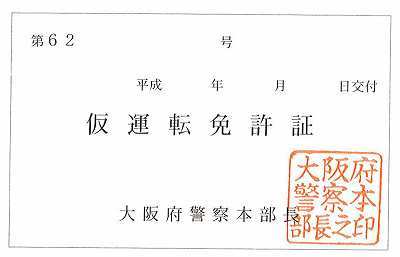 第62 号
平成 年 月 日交付
仮運転免許証
大阪府警察本部長
大阪府
警察本
部長之印